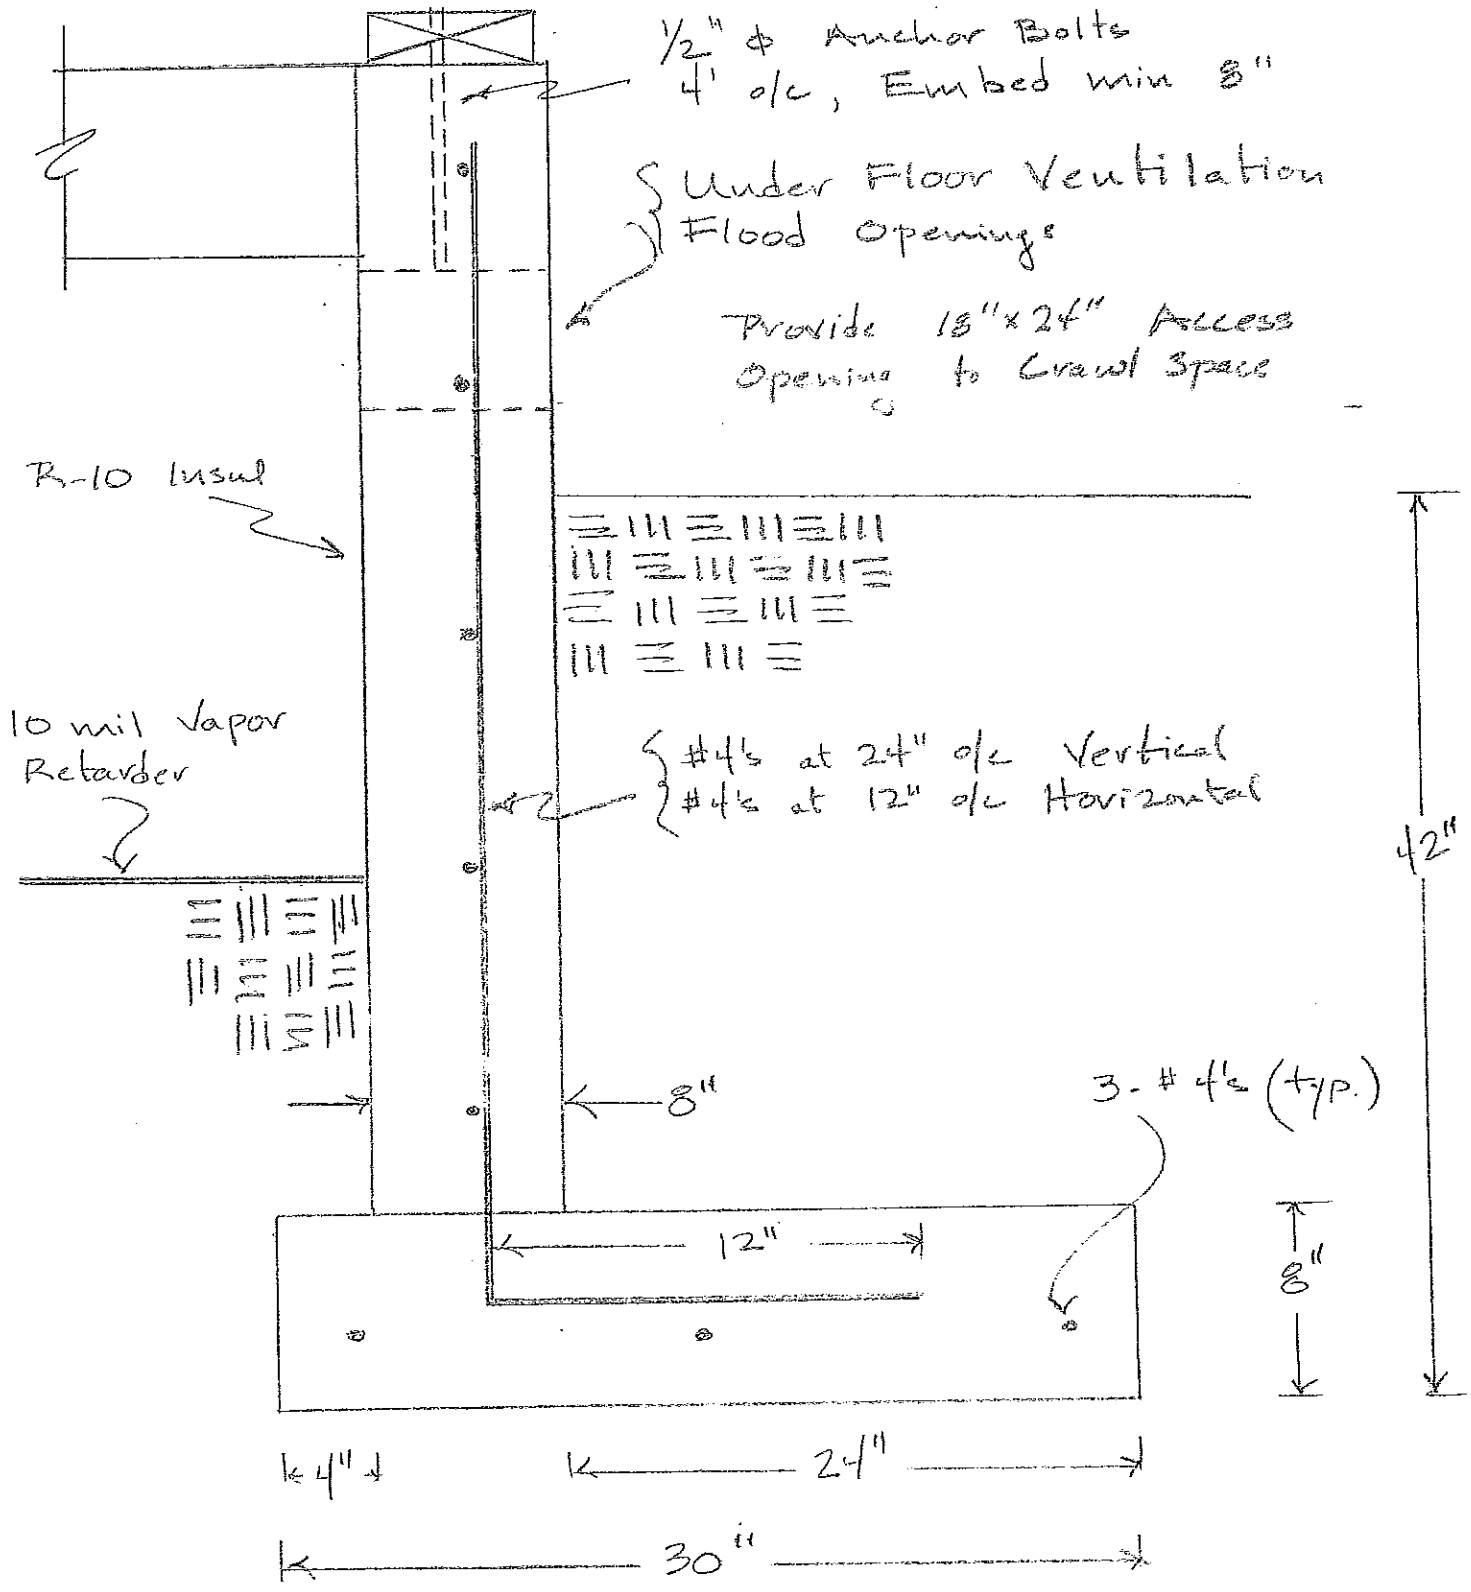 1/2" ⌀ Anchor Bolts
4' o/c, Embed min 8"
Under Floor Ventilation
Flood Openings
Provide 18"x24" Access
Opening to Crawl Space
R-10 Insul
10 mil Vapor
Retarder
#4's at 24" o/c Vertical
#4's at 12" o/c Horizontal
42"
8"
3-#4's (typ.)
12"
8"
4"
24"
30"